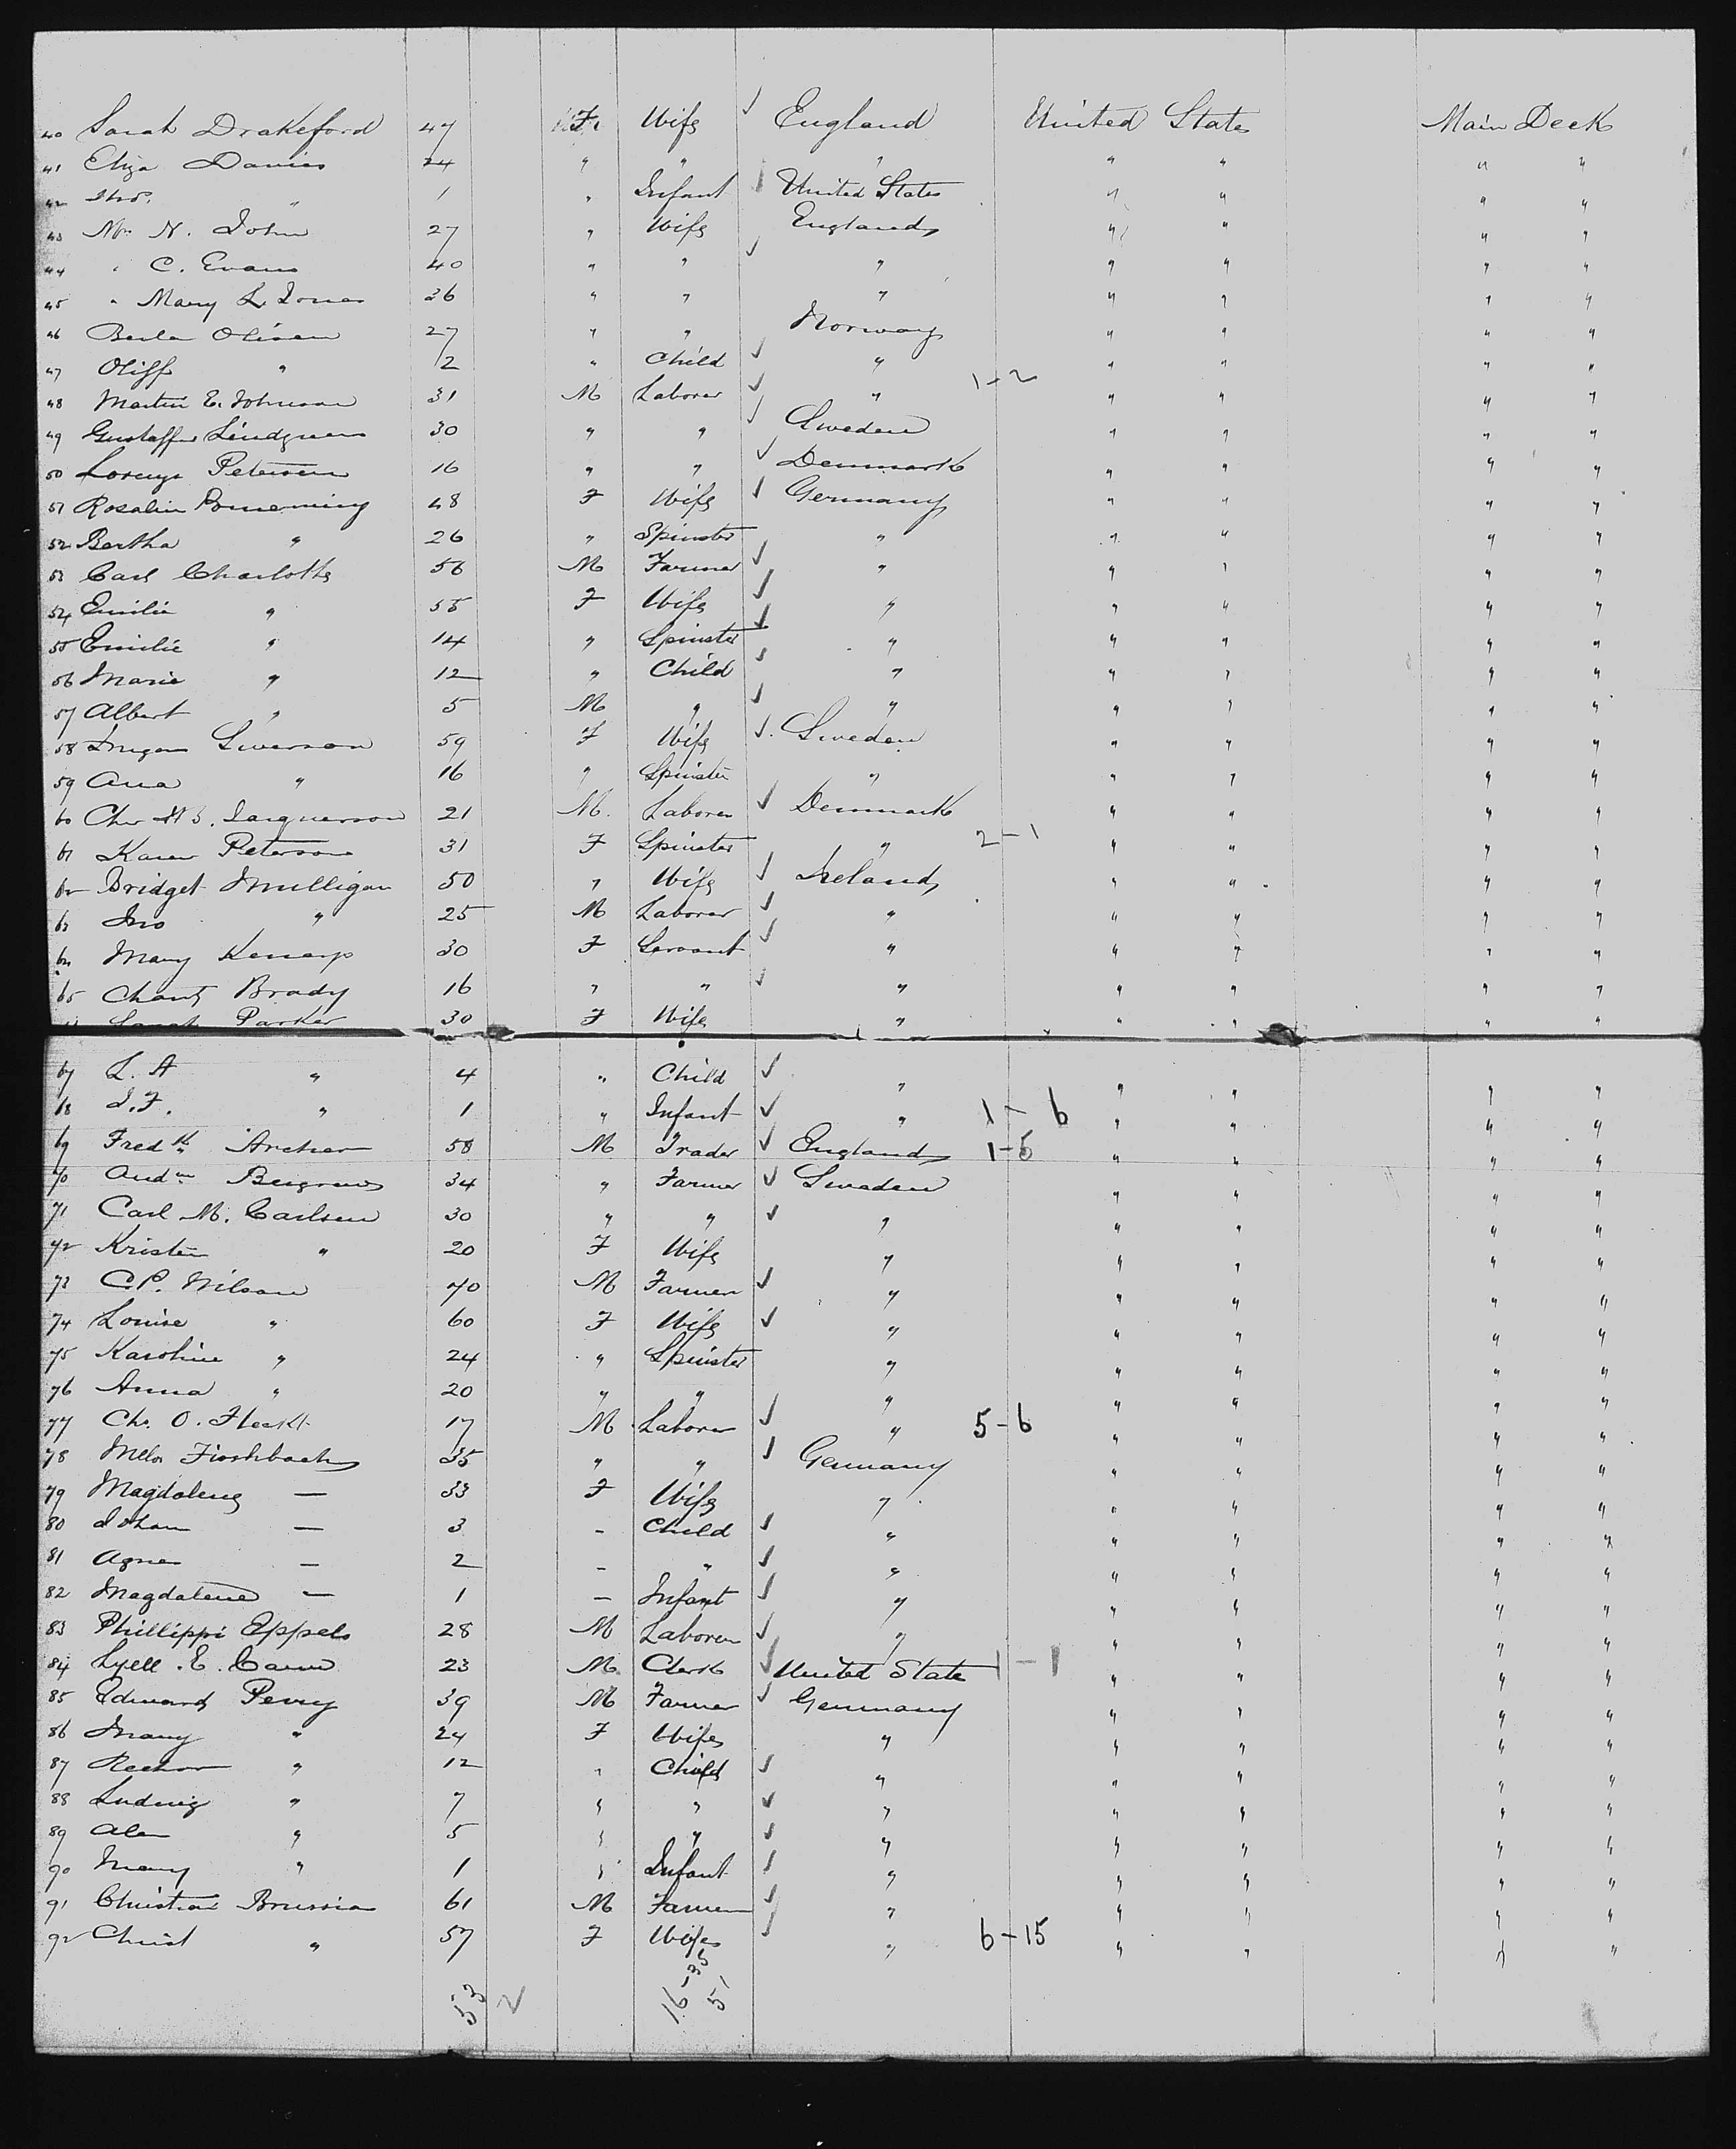 40 Sarah Drakeford 47 F. Wife ✓ England United States Main Deck
41 Eliza Davies 24 " " " " " " "
42 Thos. " 1 " Infant United States " " " "
43 Mrs N. John 27 " Wife England " " " "
44 " C. Evans 40 " " ✓ " " " " "
45 " Mary L Jones 36 " " " " " " "
46 Olisen 27 " " Norway " " " "
47 Oliff " 2 " Child ✓ " " " " "
48 Martin E. Johnson 31 M Laborer ✓ " 1-2 " " " "
49 Gustaffer Lindgren 30 " " ✓ Sweden " " " "
50 Lorenz Petersen 16 " " ✓ Denmark " " " "
51 Rosalin Pomerning 48 F Wife ✓ Germany " " " "
52 Bertha " 26 " Spinster " " " " "
53 Carl Charlotte 56 M Farmer ✓ " " " " "
54 Emilie " 55 F Wife ✓ " " " " "
55 Emilie " 14 " Spinster ✓ " " " " "
56 Marie " 12 " Child ✓ " " " " "
57 Albert " 5 M " ✓ " " " " "
58 Swenson 59 F Wife ✓ Sweden " " " "
59 Ana " 16 " Spinster " " " " "
60 Chr 21 M. Laborer ✓ Denmark " " " "
61 Karen Peterson 31 F Spinster " 2-1 " " " "
62 Bridget Mulligan 50 " Wife ✓ Ireland " " " "
63 Jno " 25 M Laborer ✓ " " " " "
64 Mary 30 F Servant ✓ " " " " "
65 Brady 16 " " ✓ " " " " "
Sarah Parker 30 F Wife " " " " "
67 L. A " 4 " Child ✓ " " " " "
68 J. F. " 1 " Infant ✓ " 1-6 " " " "
69 Fredk Archer 58 M Trader ✓ England 1-5 " " " "
70 Andw 34 " Farmer ✓ Sweden " " " "
71 Carl M. Carlsen 30 " " ✓ " " " " "
72 Kristen " 20 F Wife " " " " "
73 C.P. Nilson 70 M Farmer ✓ " " " " "
74 Louise " 60 F Wife ✓ " " " " "
75 Karoline " 24 " Spinster " " " " "
76 Anna " 20 " " " " " " "
77 Chr. O. 17 M Laborer ✓ " 5-6 " " " "
78 Fischbach 35 " " ✓ Germany " " " "
79 Magdalena — 33 F Wife " " " " "
80 Johan — 3 - Child ✓ " " " " "
81 Agnes — 2 - " ✓ " " " " "
82 Magdalene — 1 — Infant ✓ " " " " "
83 Phillippi Eppels 28 M Laborer ✓ " " " " "
84 Lyell. E. 23 M. Clerk ✓ United State 1-1 " " " "
85 Edward Perry 39 M Farmer ✓ Germany " " " "
86 Mary " 24 F Wife " " " " "
87 " 12 " Child ✓ " " " " "
88 Ludwig " 7 " " ✓ " " " " "
89 " 5 " " ✓ " " " " "
90 Mary " 1 " Infant ✓ " " " " "
91 Christian 61 M Farmer ✓ " " " " "
92 Christ " 57 F Wife ✓ " 6-15 " " " "
53 2 16-35
51